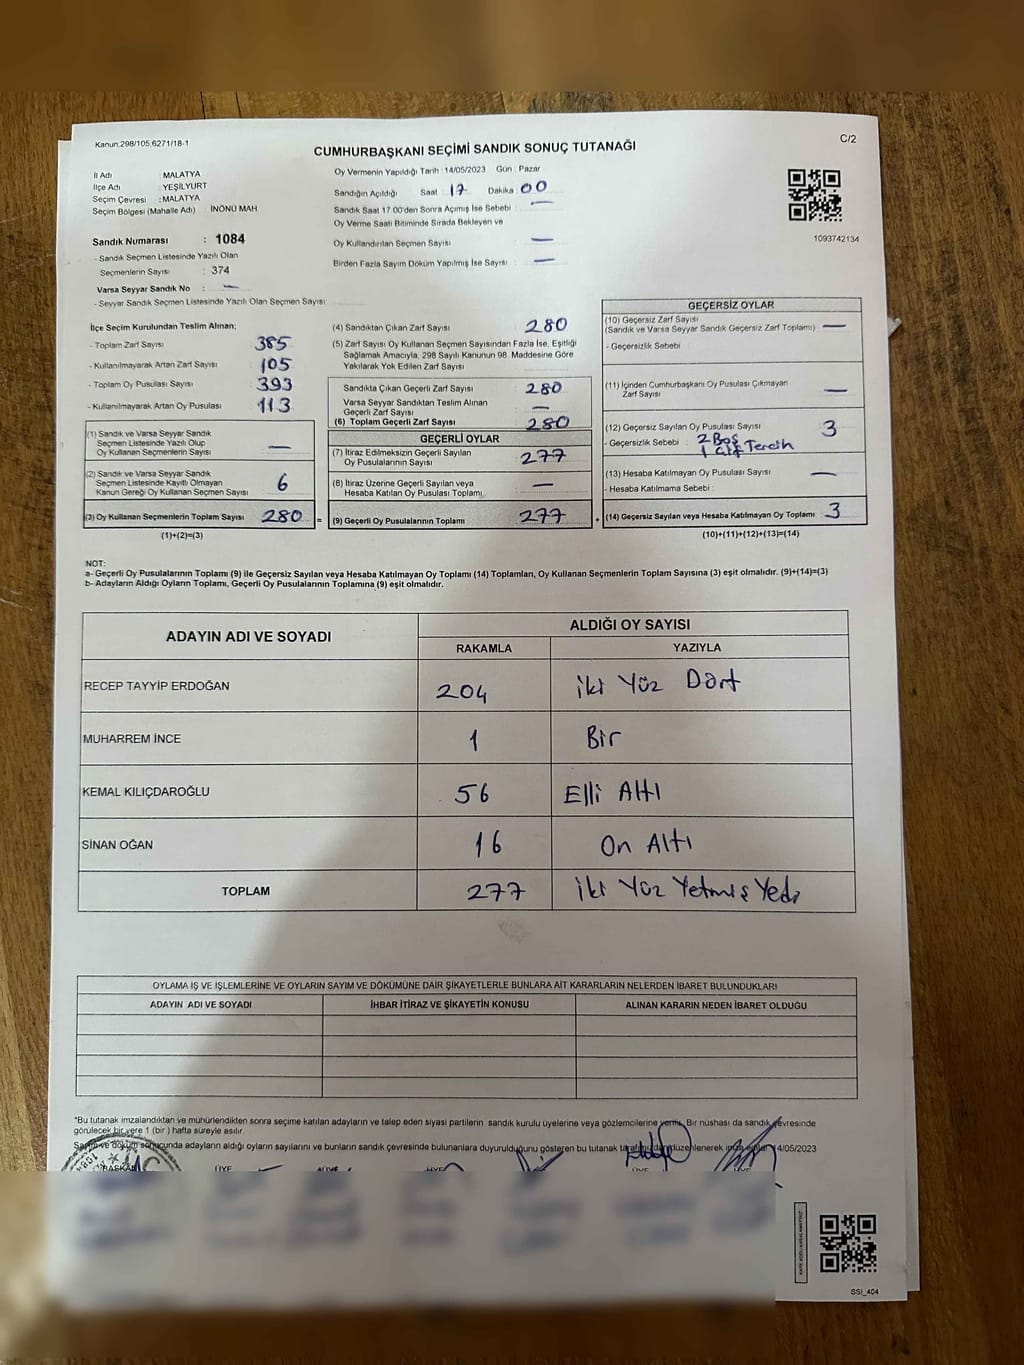 Kanun.298/105,6271/18-1
C/2
CUMHURBAŞKANI SEÇİMİ SANDIK SONUÇ TUTANAĞI
İl Adı : MALATYA
İlçe Adı : YEŞİLYURT
Seçim Çevresi : MALATYA
Seçim Bölgesi (Mahalle Adı) : İNÖNÜ MAH
Sandık Numarası : 1084
- Sandık Seçmen Listesinde Yazılı Olan
Seçmenlerin Sayısı : 374
Varsa Seyyar Sandık No : —
- Seyyar Sandık Seçmen Listesinde Yazılı Olan Seçmen Sayısı:
Oy Vermenin Yapıldığı Tarih : 14/05/2023 Gün : Pazar
Sandığın Açıldığı Saat : 17 Dakika : 00
Sandık Saat 17.00'den Sonra Açılmış İse Sebebi : —
Oy Verme Saati Bitiminde Sırada Bekleyen ve
Oy Kullandırılan Seçmen Sayısı : —
Birden Fazla Sayım Döküm Yapılmış İse Sayısı : —
1093742134
İlçe Seçim Kurulundan Teslim Alınan;
- Toplam Zarf Sayısı : 385
- Kullanılmayarak Artan Zarf Sayısı : 105
- Toplam Oy Pusulası Sayısı : 393
- Kullanılmayarak Artan Oy Pusulası : 113
(1) Sandık ve Varsa Seyyar Sandık
Seçmen Listesinde Yazılı Olup
Oy Kullanan Seçmenlerin Sayısı : —
(2) Sandık ve Varsa Seyyar Sandık
Seçmen Listesinde Kayıtlı Olmayan
Kanun Gereği Oy Kullanan Seçmen Sayısı : 6
(3) Oy Kullanan Seçmenlerin Toplam Sayısı : 280 =
(1)+(2)=(3)
(4) Sandıktan Çıkan Zarf Sayısı : 280
(5) Zarf Sayısı Oy Kullanan Seçmen Sayısından Fazla İse, Eşitliği
Sağlamak Amacıyla, 298 Sayılı Kanunun 98. Maddesine Göre
Yakılarak Yok Edilen Zarf Sayısı :
Sandıkta Çıkan Geçerli Zarf Sayısı : 280
Varsa Seyyar Sandıktan Teslim Alınan
Geçerli Zarf Sayısı : —
(6) Toplam Geçerli Zarf Sayısı : 280
GEÇERLİ OYLAR
(7) İtiraz Edilmeksizin Geçerli Sayılan
Oy Pusulalarının Sayısı : 277
(8) İtiraz Üzerine Geçerli Sayılan veya
Hesaba Katılan Oy Pusulası Toplamı : —
(9) Geçerli Oy Pusulalarının Toplamı : 277 +
GEÇERSİZ OYLAR
(10) Geçersiz Zarf Sayısı
(Sandık ve Varsa Seyyar Sandık Geçersiz Zarf Toplamı) : —
- Geçersizlik Sebebi :
(11) İçinden Cumhurbaşkanı Oy Pusulası Çıkmayan
Zarf Sayısı : —
(12) Geçersiz Sayılan Oy Pusulası Sayısı : 3
- Geçersizlik Sebebi : 2 Boş
1 Çift Tercih
(13) Hesaba Katılmayan Oy Pusulası Sayısı : —
- Hesaba Katılmama Sebebi :
(14) Geçersiz Sayılan veya Hesaba Katılmayan Oy Toplamı : 3
(10)+(11)+(12)+(13)=(14)
NOT:
a- Geçerli Oy Pusulalarının Toplamı (9) ile Geçersiz Sayılan veya Hesaba Katılmayan Oy Toplamı (14) Toplamları, Oy Kullanan Seçmenlerin Toplam Sayısına (3) eşit olmalıdır. (9)+(14)=(3)
b- Adayların Aldığı Oyların Toplamı, Geçerli Oy Pusulalarının Toplamına (9) eşit olmalıdır.
ADAYIN ADI VE SOYADI
ALDIĞI OY SAYISI
RAKAMLA YAZIYLA
RECEP TAYYİP ERDOĞAN 204 iki Yüz Dört
MUHARREM İNCE 1 Bir
KEMAL KILIÇDAROĞLU 56 Elli Altı
SİNAN OĞAN 16 On Altı
TOPLAM 277 iki Yüz Yetmiş Yedi
OYLAMA İŞ VE İŞLEMLERİNE VE OYLARIN SAYIM VE DÖKÜMÜNE DAİR ŞİKAYETLERLE BUNLARA AİT KARARLARIN NELERDEN İBARET BULUNDUKLARI
ADAYIN ADI VE SOYADI İHBAR İTİRAZ VE ŞİKAYETİN KONUSU ALINAN KARARIN NEDEN İBARET OLDUĞU
*Bu tutanak imzalandıktan ve mühürlendikten sonra seçime katılan adayların ve talep eden siyasi partilerin sandık kurulu üyelerine veya gözlemcilerine verilir. Bir nüshası da sandık çevresinde
görülecek bir yere 1 (bir) hafta süreyle asılır.
Sayım ve döküm sonucunda adayların aldığı oyların sayılarını ve bunların sandık çevresinde bulunanlara duyurulduğunu gösteren bu tutanak düzenlenerek 14/05/2023
BAŞKAN ÜYE ÜYE ÜYE ÜYE
SSI_404